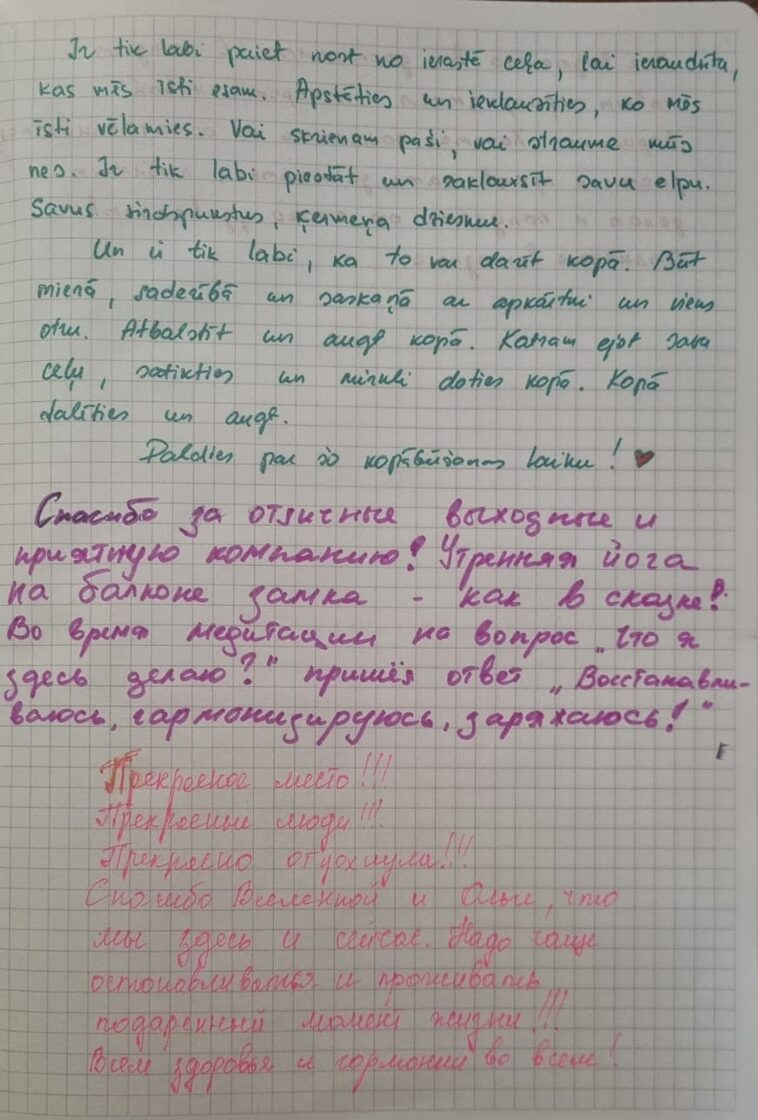 Ir tik labi paiet nost no ierastā ceļa, lai ieraudzītu,
kas mēs īsti esam. Apstāties un ieklausīties, ko mēs
īsti vēlamies. Vai skrienam paši, vai straume mūs
nes. Ir tik labi piestāt un saklausīt savu elpu.
Savus sirdspukstus, ķermeņa dziesmu.
Un ir tik labi, ka to var darīt kopā. Būt
mierā, saderībā un saskaņā ar apkārtni un viens
otru. Atbalstīt un augt kopā. Katram ejot savu
ceļu, satikties un mirkli doties kopā. Kopā
dalīties un augt.
Paldies par šo kopābūšanas laiku!
Спасибо за отличные выходные и
приятную компанию! Утренняя йога
на балконе замка - как в сказке!
Во время медитации на вопрос „Что я
здесь делаю?" пришёл ответ „Восстанавли-
ваюсь, гармонизируюсь, заряжаюсь!"
Прекрасное место!!!
Прекрасные люди!!!
Прекрасно отдохнула!!!
Спасибо Вселенной и Ольге, что
мы здесь и сейчас. Надо чаще
останавливаться и проживать
подаренный момент жизни!!!
Всем здоровья и гармонии во всем!